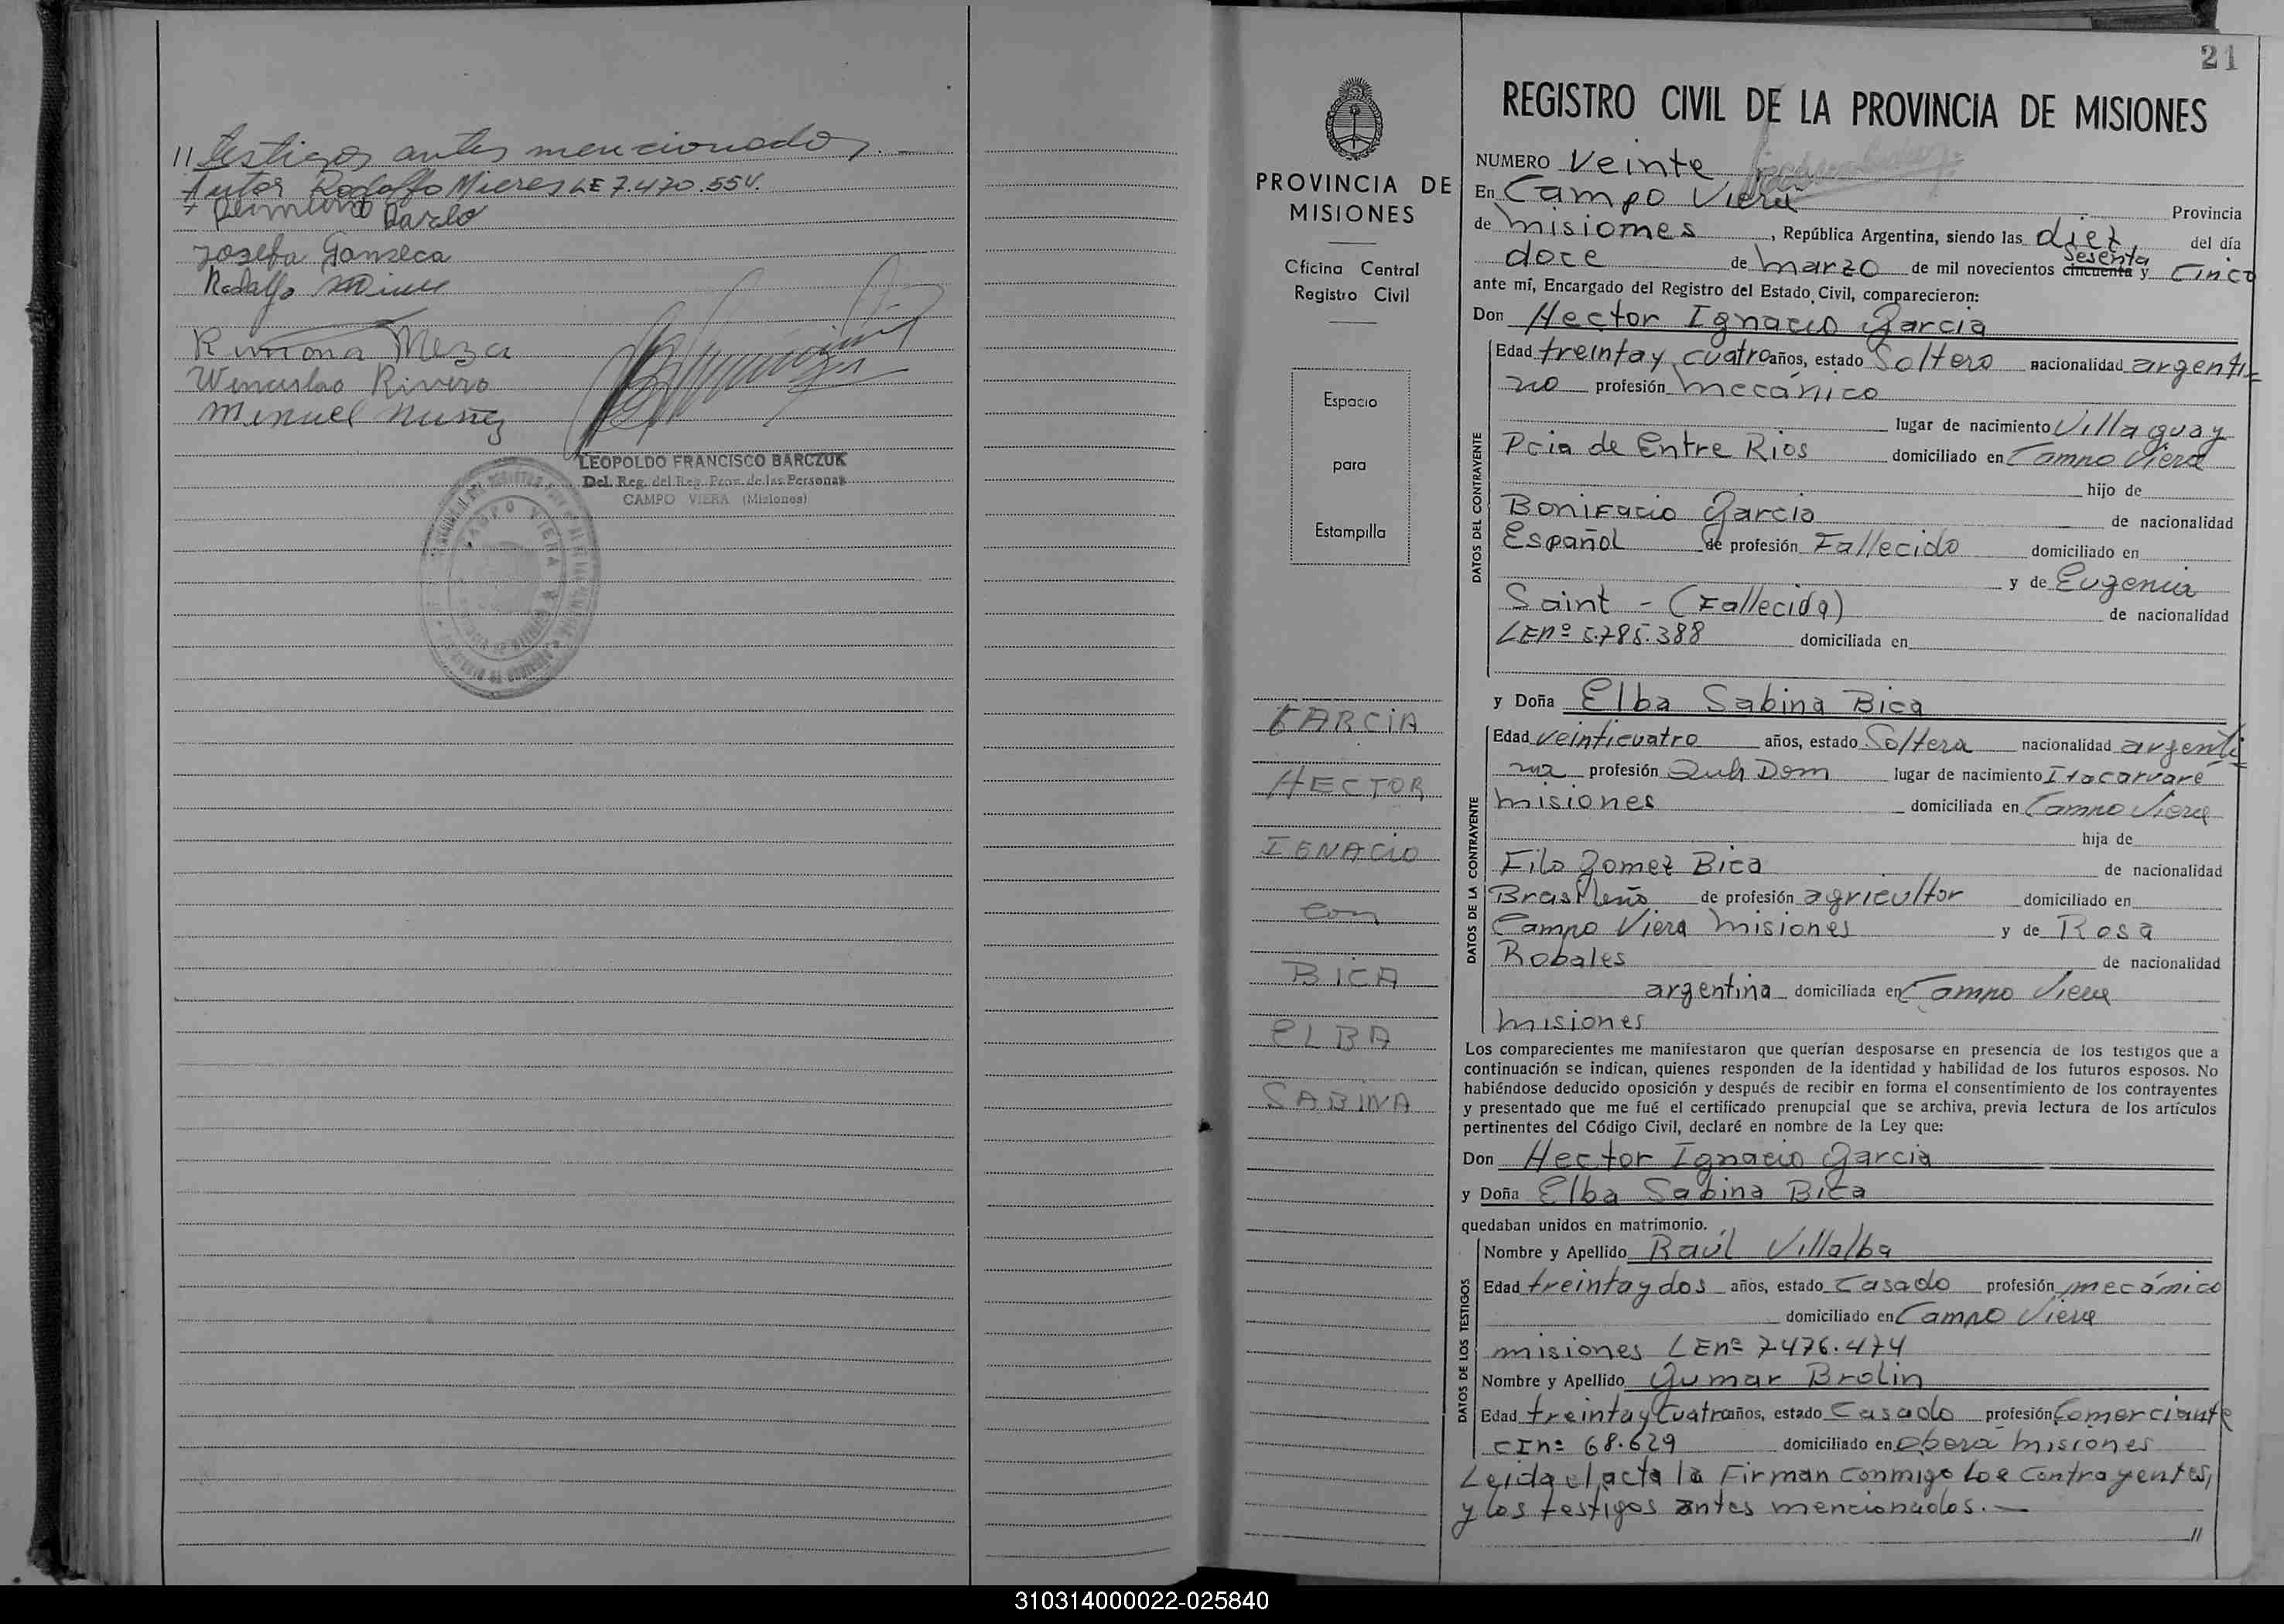 // testigos antes mencionados.
Rodolfo Mieres LE 7.470.554.
Josefa Fonseca
Rodolfo
Ramona Meza
Wenceslao Rivero
LEOPOLDO FRANCISCO BARCZUK
Del. Reg. del Reg. Prov. de las Personas
CAMPO VIERA (Misiones)
CAMPO VIERA
PROVINCIA DE
MISIONES
Oficina Central
Registro Civil
Espacio
para
Estampilla
GARCIA
HECTOR
IGNACIO
con
BICA
ELBA
SABINA
21
REGISTRO CIVIL DE LA PROVINCIA DE MISIONES
NUMERO Veinte
En Campo Viera Provincia
de Misiones, República Argentina, siendo las diez, del día
doce de marzo de mil novecientos cincuenta sesenta y cinco
ante mí, Encargado del Registro del Estado Civil, comparecieron:
Don Hector Ignacio Garcia
Edad treinta y cuatro años, estado Soltero nacionalidad argenti=
no profesión mecánico
lugar de nacimiento Villaguay
Pcia de Entre Rios domiciliado en Campo Viera
hijo de
Bonifacio Garcia de nacionalidad
Español de profesión Fallecido domiciliado en
y de Eugenia
Saint - (Fallecida) de nacionalidad
LE nº 5.785.388 domiciliada en
y Doña Elba Sabina Bica
Edad veinticuatro años, estado Soltera nacionalidad argenti=
na profesión Queh Dom lugar de nacimiento Itacaruare
misiones domiciliada en Campo Viera
hija de
Filo Gomez Bica de nacionalidad
Brasileño de profesión agricultor domiciliado en
Campo Viera Misiones y de Rosa
Robales de nacionalidad
argentina domiciliada en Campo Viera
misiones
Los comparecientes me manifestaron que querían desposarse en presencia de los testigos que a
continuación se indican, quienes responden de la identidad y habilidad de los futuros esposos. No
habiéndose deducido oposición y después de recibir en forma el consentimiento de los contrayentes
y presentado que me fué el certificado prenupcial que se archiva, previa lectura de los artículos
pertinentes del Código Civil, declaré en nombre de la Ley que:
Don Hector Ignacio Garcia
y Doña Elba Sabina Bica
quedaban unidos en matrimonio.
Nombre y Apellido Raúl Villalba
Edad treinta y dos años, estado Casado profesión mecánico
domiciliado en Campo Viera
misiones LE nº 7476.474
Nombre y Apellido Gumar Brolin
Edad treinta y cuatro años, estado Casado profesión Comerciante
CI nº 68.629 domiciliado en obera misiones
Leida el acta la Firman conmigo los contrayentes,
y los testigos antes mencionados. —
//
DATOS DEL CONTRAYENTE
DATOS DE LA CONTRAYENTE
DATOS DE LOS TESTIGOS
310314000022-025840